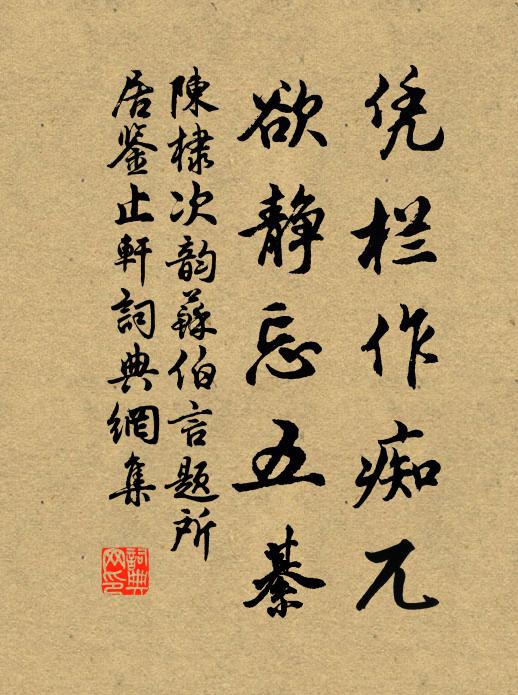 凭栏作痴兀
欲静忘五綦
陳棣次韵蘇伯言題所
居鉴止軒詞典網集
詞典网印